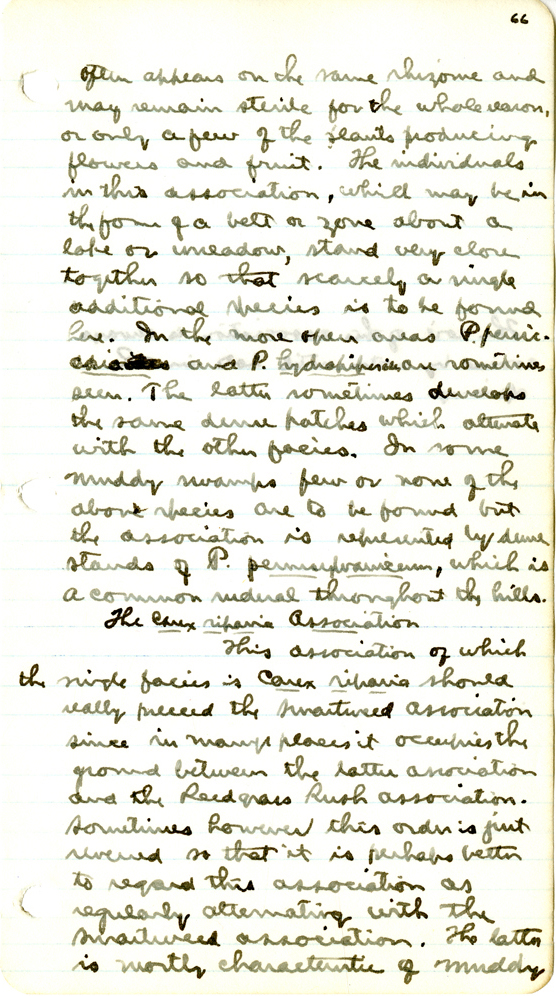 66
often appears on the same rhizome and
may remain sterile for the whole season,
or only a few of the plants producing
flowers and fruit. The individuals
in this association, which may be in
the form of a belt or zone about a
lake or in meadow, stand very close
together so that scarcely a single
additional species is to be found
here. In the more open areas P.
and P. hydropiper are sometimes
seen. The latter sometimes develops
the same dense patches which alternate
with the other facies. In some
muddy swamps few or none of the
above species are to be found but
the association is represented by dense
stands of P. pennsylvanicum, which is
a common ruderal throughout the hills.
The Carex riparia Association
This association of which
the single facies is Carex riparia should
really preceed the smartweed association
since in many places it occupies the
ground between the latter association
and the Reedgrass Rush association.
Sometimes however this order is just
reversed so that it is perhaps better
to regard this association as
regularly alternating with the
smartweed association. The latter
is mostly characteristic of muddy